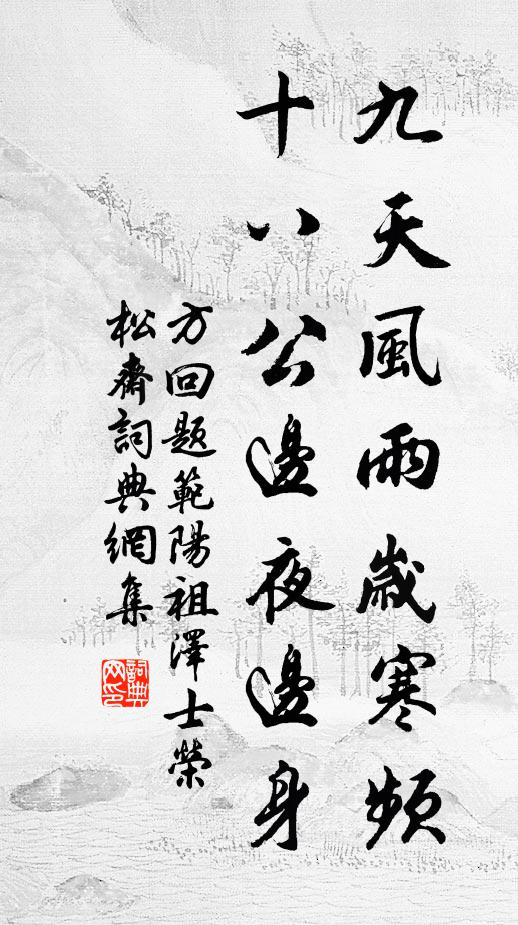 九天風雨歲寒頻
十八公邊夜邊身
方回題範陽祖澤士榮
松齋詞典網集
詞典網印